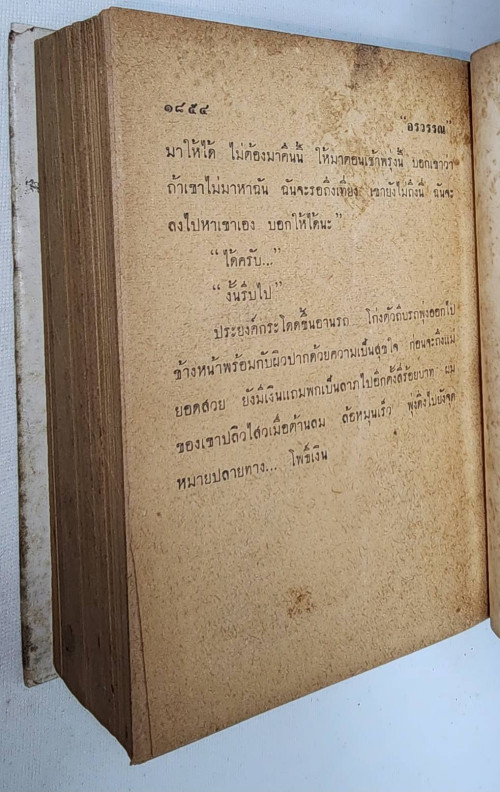 ๑๘๕๔
"อรวรรณ"
มาให้ได้ ไม่ต้องมาคืนนี้ ให้มาตอนเช้าพรุ่งนี้ บอกเขาว่า
ถ้าเขาไม่มาหาฉัน ฉันจะรอถึงเที่ยง เขายังไม่ถึงนี่ ฉันจะ
ลงไปหาเขาเอง บอกให้ได้นะ"
"ได้ครับ..."
"งั้นรีบไป"
ประยงค์กระโดดขึ้นอานรถ โก่งตัวถีบรถพุ่งออกไป
ข้างหน้าพร้อมกับผิวปากด้วยความเป็นสุขใจ ก่อนจะถึงแม่
ยอดสวย ยังมีเงินแถมพกเป็นลาภไปอีกตั้งสี่ร้อยบาท ผม
ของเขาปลิวไสวเมื่อต้านลม ล้อหมุนเร็ว พุ่งดิ่งไปยังจุด
หมายปลายทาง... โพธิ์เงิน